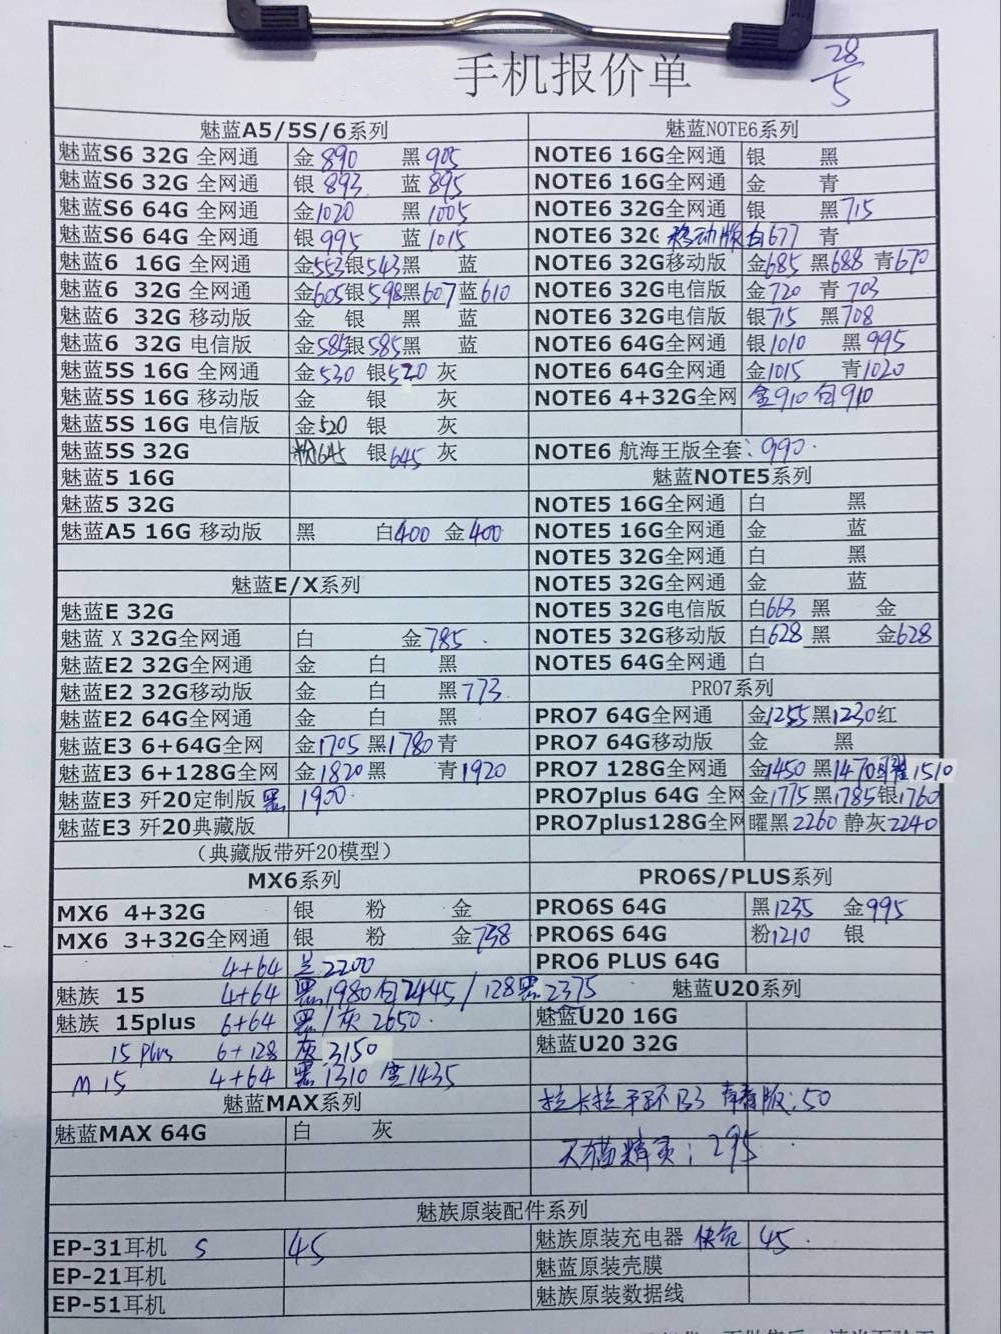 手机报价单 28/5
魅蓝A5/5S/6系列
魅蓝S6 32G 全网通 金890 黑905
魅蓝S6 32G 全网通 银893 蓝895
魅蓝S6 64G 全网通 金1020 黑1005
魅蓝S6 64G 全网通 银995 蓝1015
魅蓝6 16G 全网通 金553银543黑 蓝
魅蓝6 32G 全网通 金605银598黑607蓝610
魅蓝6 32G 移动版 金 银 黑 蓝
魅蓝6 32G 电信版 金585银585黑 蓝
魅蓝5S 16G 全网通 金530 银520 灰
魅蓝5S 16G 移动版 金 银 灰
魅蓝5S 16G 电信版 金520 银 灰
魅蓝5S 32G 粉645 银645 灰
魅蓝5 16G
魅蓝5 32G
魅蓝A5 16G 移动版 黑 白400 金400
魅蓝E/X系列
魅蓝E 32G
魅蓝 X 32G全网通 白 金785
魅蓝E2 32G全网通 金 白 黑
魅蓝E2 32G移动版 金 白 黑773
魅蓝E2 64G全网通 金 白 黑
魅蓝E3 6+64G全网 金1705 黑1780 青
魅蓝E3 6+128G全网 金1820 黑 青1920
魅蓝E3 歼20定制版 黑 1900
魅蓝E3 歼20典藏版
（典藏版带歼20模型）
MX6系列
MX6 4+32G 银 粉 金
MX6 3+32G全网通 银 粉 金738
4+64 兰2200
魅族 15 4+64 黑1980 白2445/128黑2375
魅族 15plus 6+64 黑/灰 2650
15 plus 6+128 灰3150
M15 4+64 黑1310 金1435
魅蓝MAX系列
魅蓝MAX 64G 白 灰
魅蓝NOTE6系列
NOTE6 16G全网通 银 黑
NOTE6 16G全网通 金 青
NOTE6 32G全网通 银 黑715
NOTE6 32G 移动版 白677 青
NOTE6 32G移动版 金685 黑688 青670
NOTE6 32G电信版 金720 青 703
NOTE6 32G电信版 银715 黑708
NOTE6 64G全网通 银1010 黑995
NOTE6 64G全网通 金1015 青1020
NOTE6 4+32G全网 金910 白910
NOTE6 航海王版全套：990
魅蓝NOTE5系列
NOTE5 16G全网通 白 黑
NOTE5 16G全网通 金 蓝
NOTE5 32G全网通 白 黑
NOTE5 32G全网通 金 蓝
NOTE5 32G电信版 白663 黑 金
NOTE5 32G移动版 白628 黑 金628
NOTE5 64G全网通 白
PRO7系列
PRO7 64G全网通 金1255黑1230红
PRO7 64G移动版 金 黑
PRO7 128G全网通 金1450 黑1470 1510
PRO7plus 64G 全网 金1775黑1785银1760
PRO7plus128G全网 曜黑2260 静灰2240
PRO6S/PLUS系列
PRO6S 64G 黑1235 金995
PRO6S 64G 粉1210 银
PRO6 PLUS 64G
魅蓝U20系列
魅蓝U20 16G
魅蓝U20 32G
拉卡拉手环B3 青春版：50
天猫精灵：295
魅族原装配件系列
EP-31耳机 S 45
EP-21耳机
EP-51耳机
魅族原装充电器 快充 45
魅蓝原装壳膜
魅族原装数据线